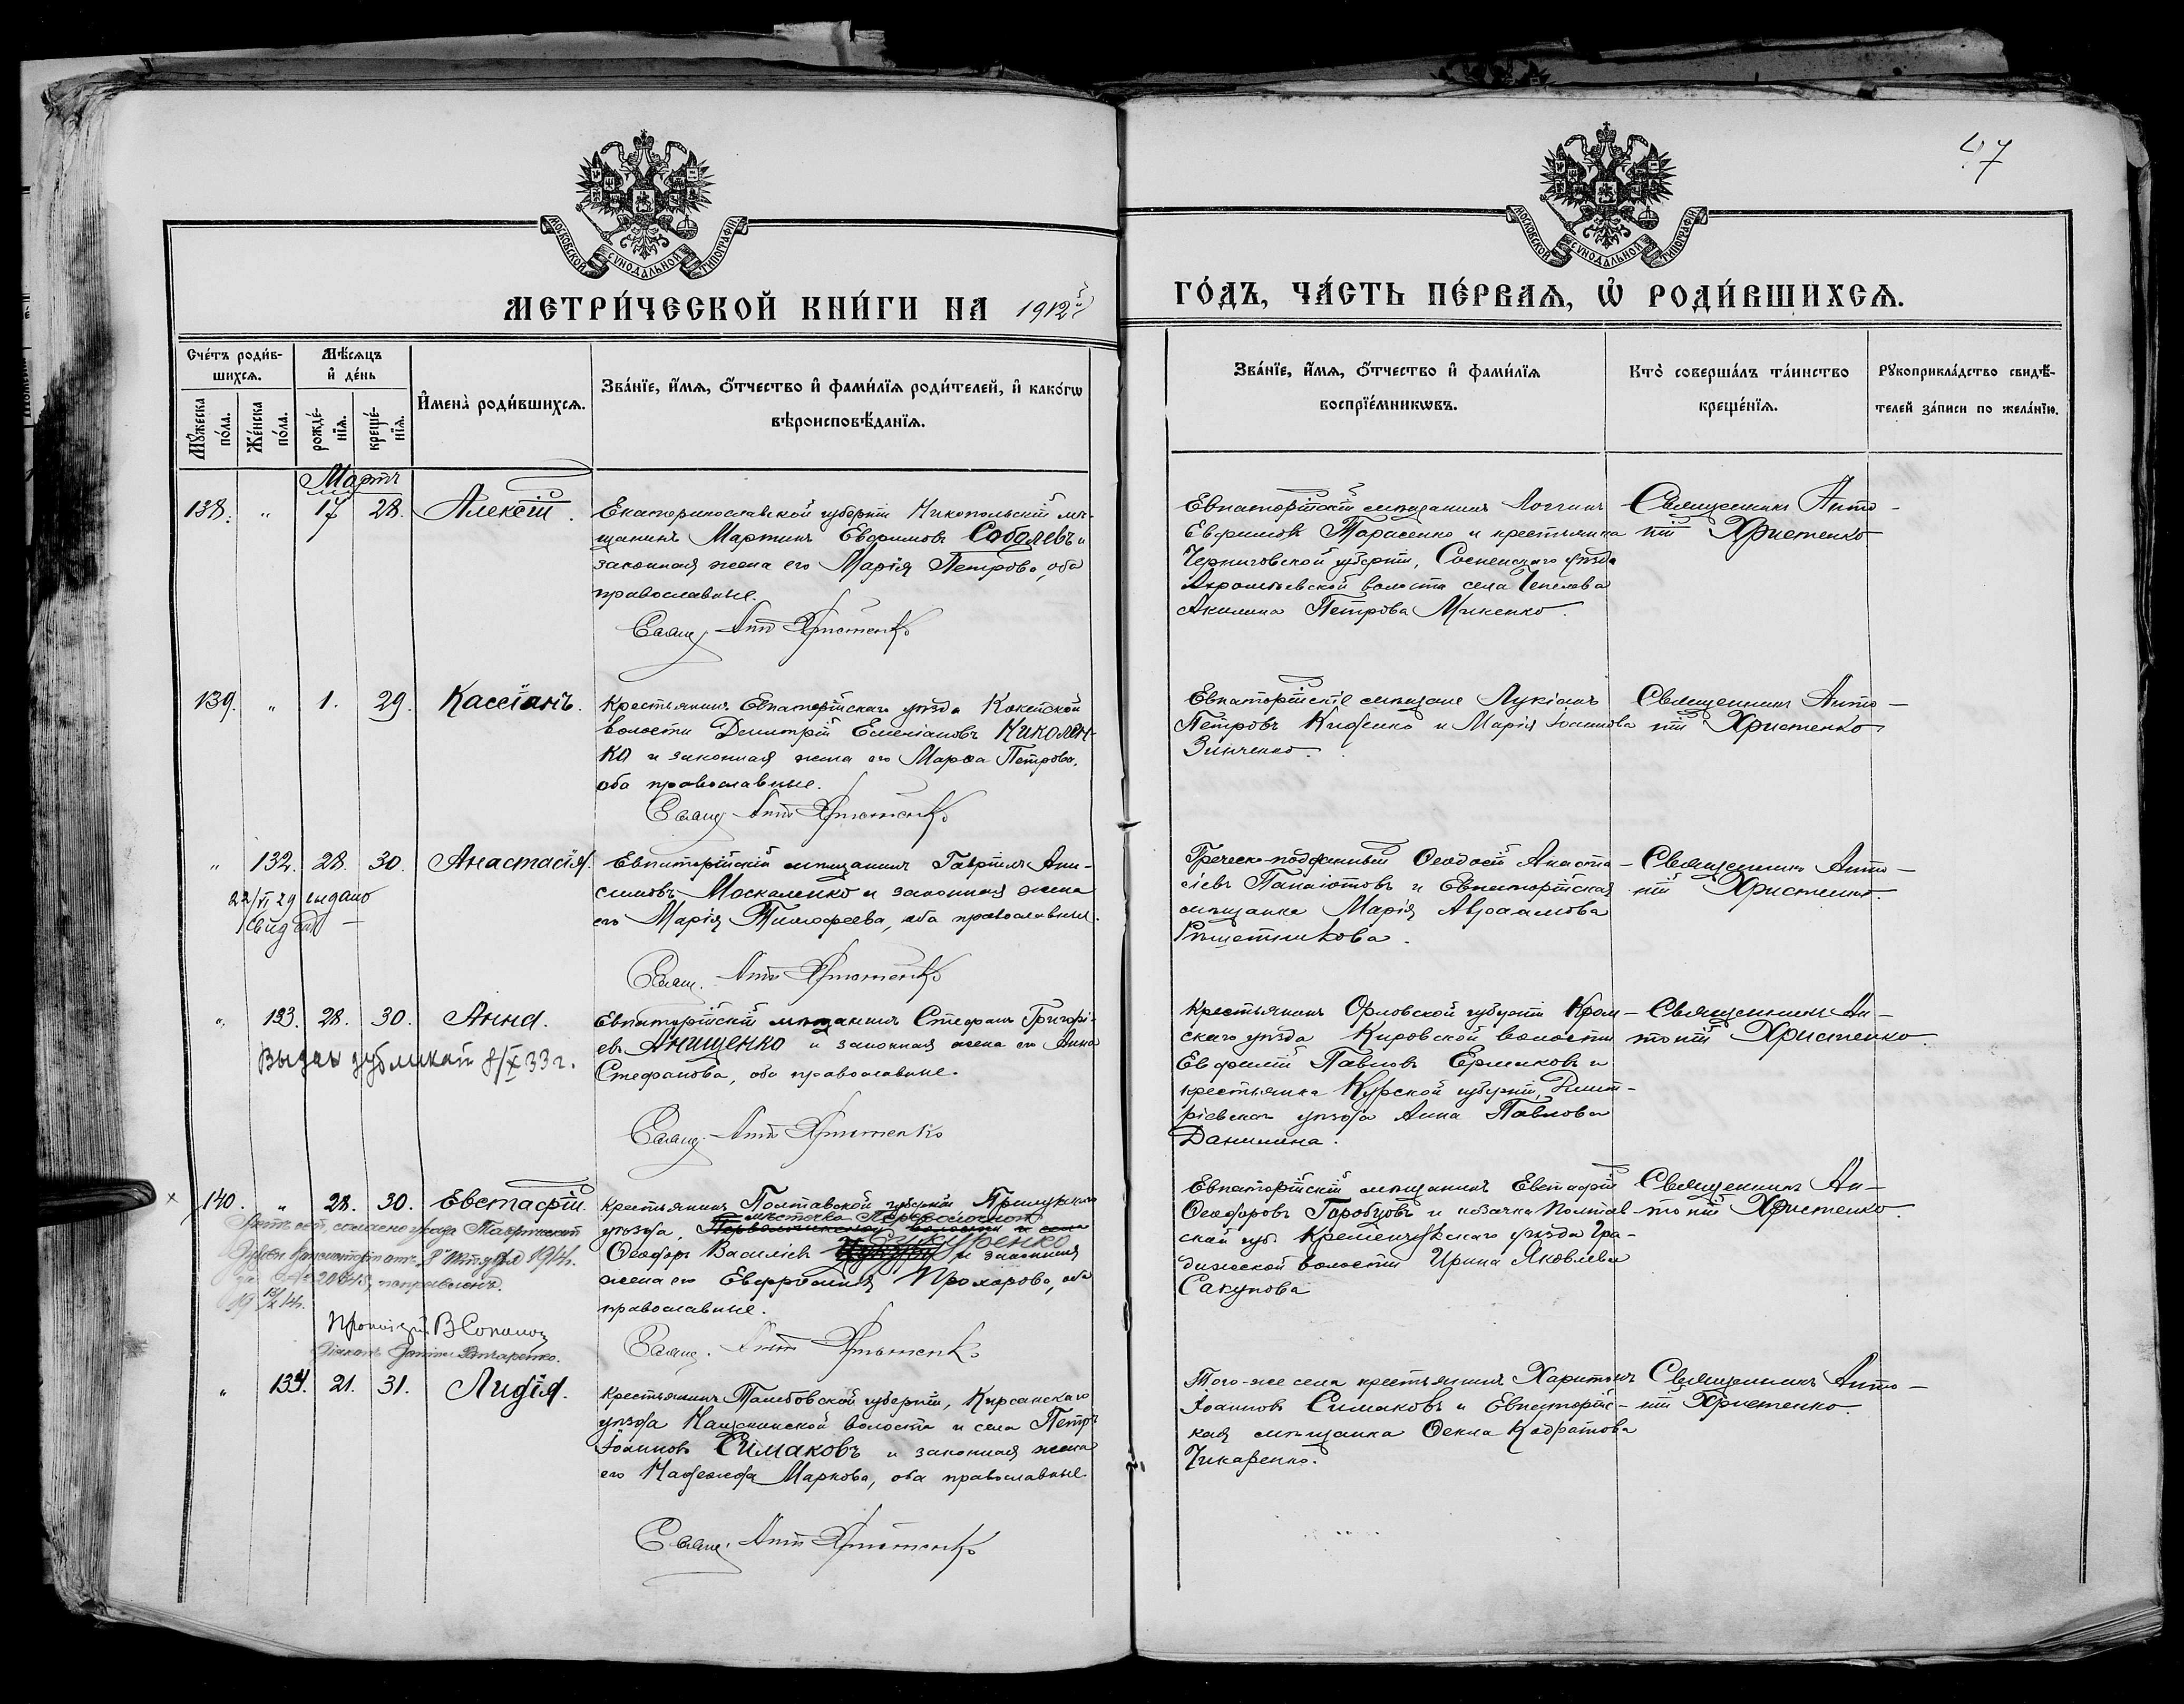 47
МОСКОВСКОЙ СУНОДАЛЬНОЙ ТИПОГРАФІИ
МОСКОВСКОЙ СУНОДАЛЬНОЙ ТИПОГРАФІИ
МЕТРИ́ЧЕСКОЙ КНИ́ГИ НА 1912й
ГО́ДЪ, ЧА́СТЬ ПЕ́РВАѦ, Ѡ҆ РОДИ́ВШИХСѦ.
Сче́тъ роди́в-
шихсѧ.
Мꙋ́жеска по́ла.
Же́нска по́ла.
Мѣ́сѧцъ
и҆ де́нь
рожде́-
нїѧ.
креще́-
нїѧ.
И҆мена̀ роди́вшихсѧ.
Зва́нїе, и҆́мѧ, ѻ҆́тчество и҆ фами́лїѧ роди́телей, и҆ како́гѡ
вѣроисповѣ́данїѧ.
Зва́нїе, и҆́мѧ, ѻ҆́тчество и҆ фами́лїѧ
воспрїе́мникѡвъ.
Кто̀ соверша́лъ та́инство
креще́нїѧ.
Рꙋкоприкла́дство свидѣ́-
телей за́писи по жела́нїю.
Мартъ
138. " 17 28. Алексій.
Екатеринославской губерніи Никопольскій мѣ-
щанинъ Мартинъ Евфимовъ Соболевъ и
законная жена его Марія Петрова, оба
православные.
Свящ. Антоній Христенко
Евпаторійскій мѣщанинъ Логгинъ
Евфимов Тарасенко и крестьянка
Черниговской губерніи, Сосницкаго уѣзда
волости села
Акилина Петрова
Священникъ Анто-
ній Христенко
139. " 1. 29. Кассіанъ.
Крестьянинъ Евпаторійскаго уѣзда
волости Димитрій Емеліановъ Николен-
ко и законная жена его Марѳа Петрова,
оба православные.
Свящ. Антоній Христенко
Евпаторійскіе мѣщане Лукіанъ
Петровъ и Марія Іоаннова
Зинченко.
Священникъ Анто-
ній Христенко
" 132. 28. 30. Анастасія.
22/VI 29 выдано
свид
Евпаторійскій мѣщанинъ Гавріилъ Ани-
симовъ Москаленко и законная жена
его Марія Тимофеева, оба православные.
Свящ. Антоній Христенко
Греческо-подданный Ѳеодосій Анаста-
сіевъ Панаіотовъ и Евпаторійская
мѣщанка Марія Авраамова
Рѣшетникова.
Священникъ Анто-
ній Христенко.
" 133. 28. 30. Анна.
Выдан дубликат 8/X 33 г.
Евпаторійскій мѣщанинъ Стефанъ Григорі-
евъ Анищенко и законная жена его Анна
Стефанова, оба православные.
Свящ. Антоній Христенко
Крестьянинъ Орловской губерніи Кром-
скаго уѣзда Кировской волости
Евфимій Павловъ Ермаковъ и
крестьянка Курской губерніи, Дмит-
ріевскаго уѣзда Анна Павлова
Данилина.
Священникъ Ан-
тоній Христенко
140. " 28. 30. Евстафій.
Крестьянинъ Полтавской губерніи Прилукскаго
мѣстечка
уѣзда, волости и села
Ѳеодоръ Василіевъ и законная
жена его Евфросинія Прохорова, оба
православные.
Свящ. Антоній Христенко
Евпаторійскій мѣщанинъ Евстафій
Ѳеодоровъ Горобцовъ и казачка Полтав-
ской губ. Кременчугскаго уѣзда Гра-
дижской волости Ирина Яковлева
Сакунова
Священникъ Ан-
тоній Христенко.
" 134. 21. 31. Лидія.
Крестьянинъ Тамбовской губерніи, Кирсанскаго
уѣзда волости и села Петръ
Іоанновъ Симаковъ и законная жена
его Надежда Маркова, оба православные.
Свящ. Антоній Христенко
Того-же села крестьянинъ Харитонъ
Іоанновъ Симаковъ и Евпаторійс-
кая мѣщанка Ѳекла Кодратова
Чикаренко.
Священникъ Анто-
ній Христенко.